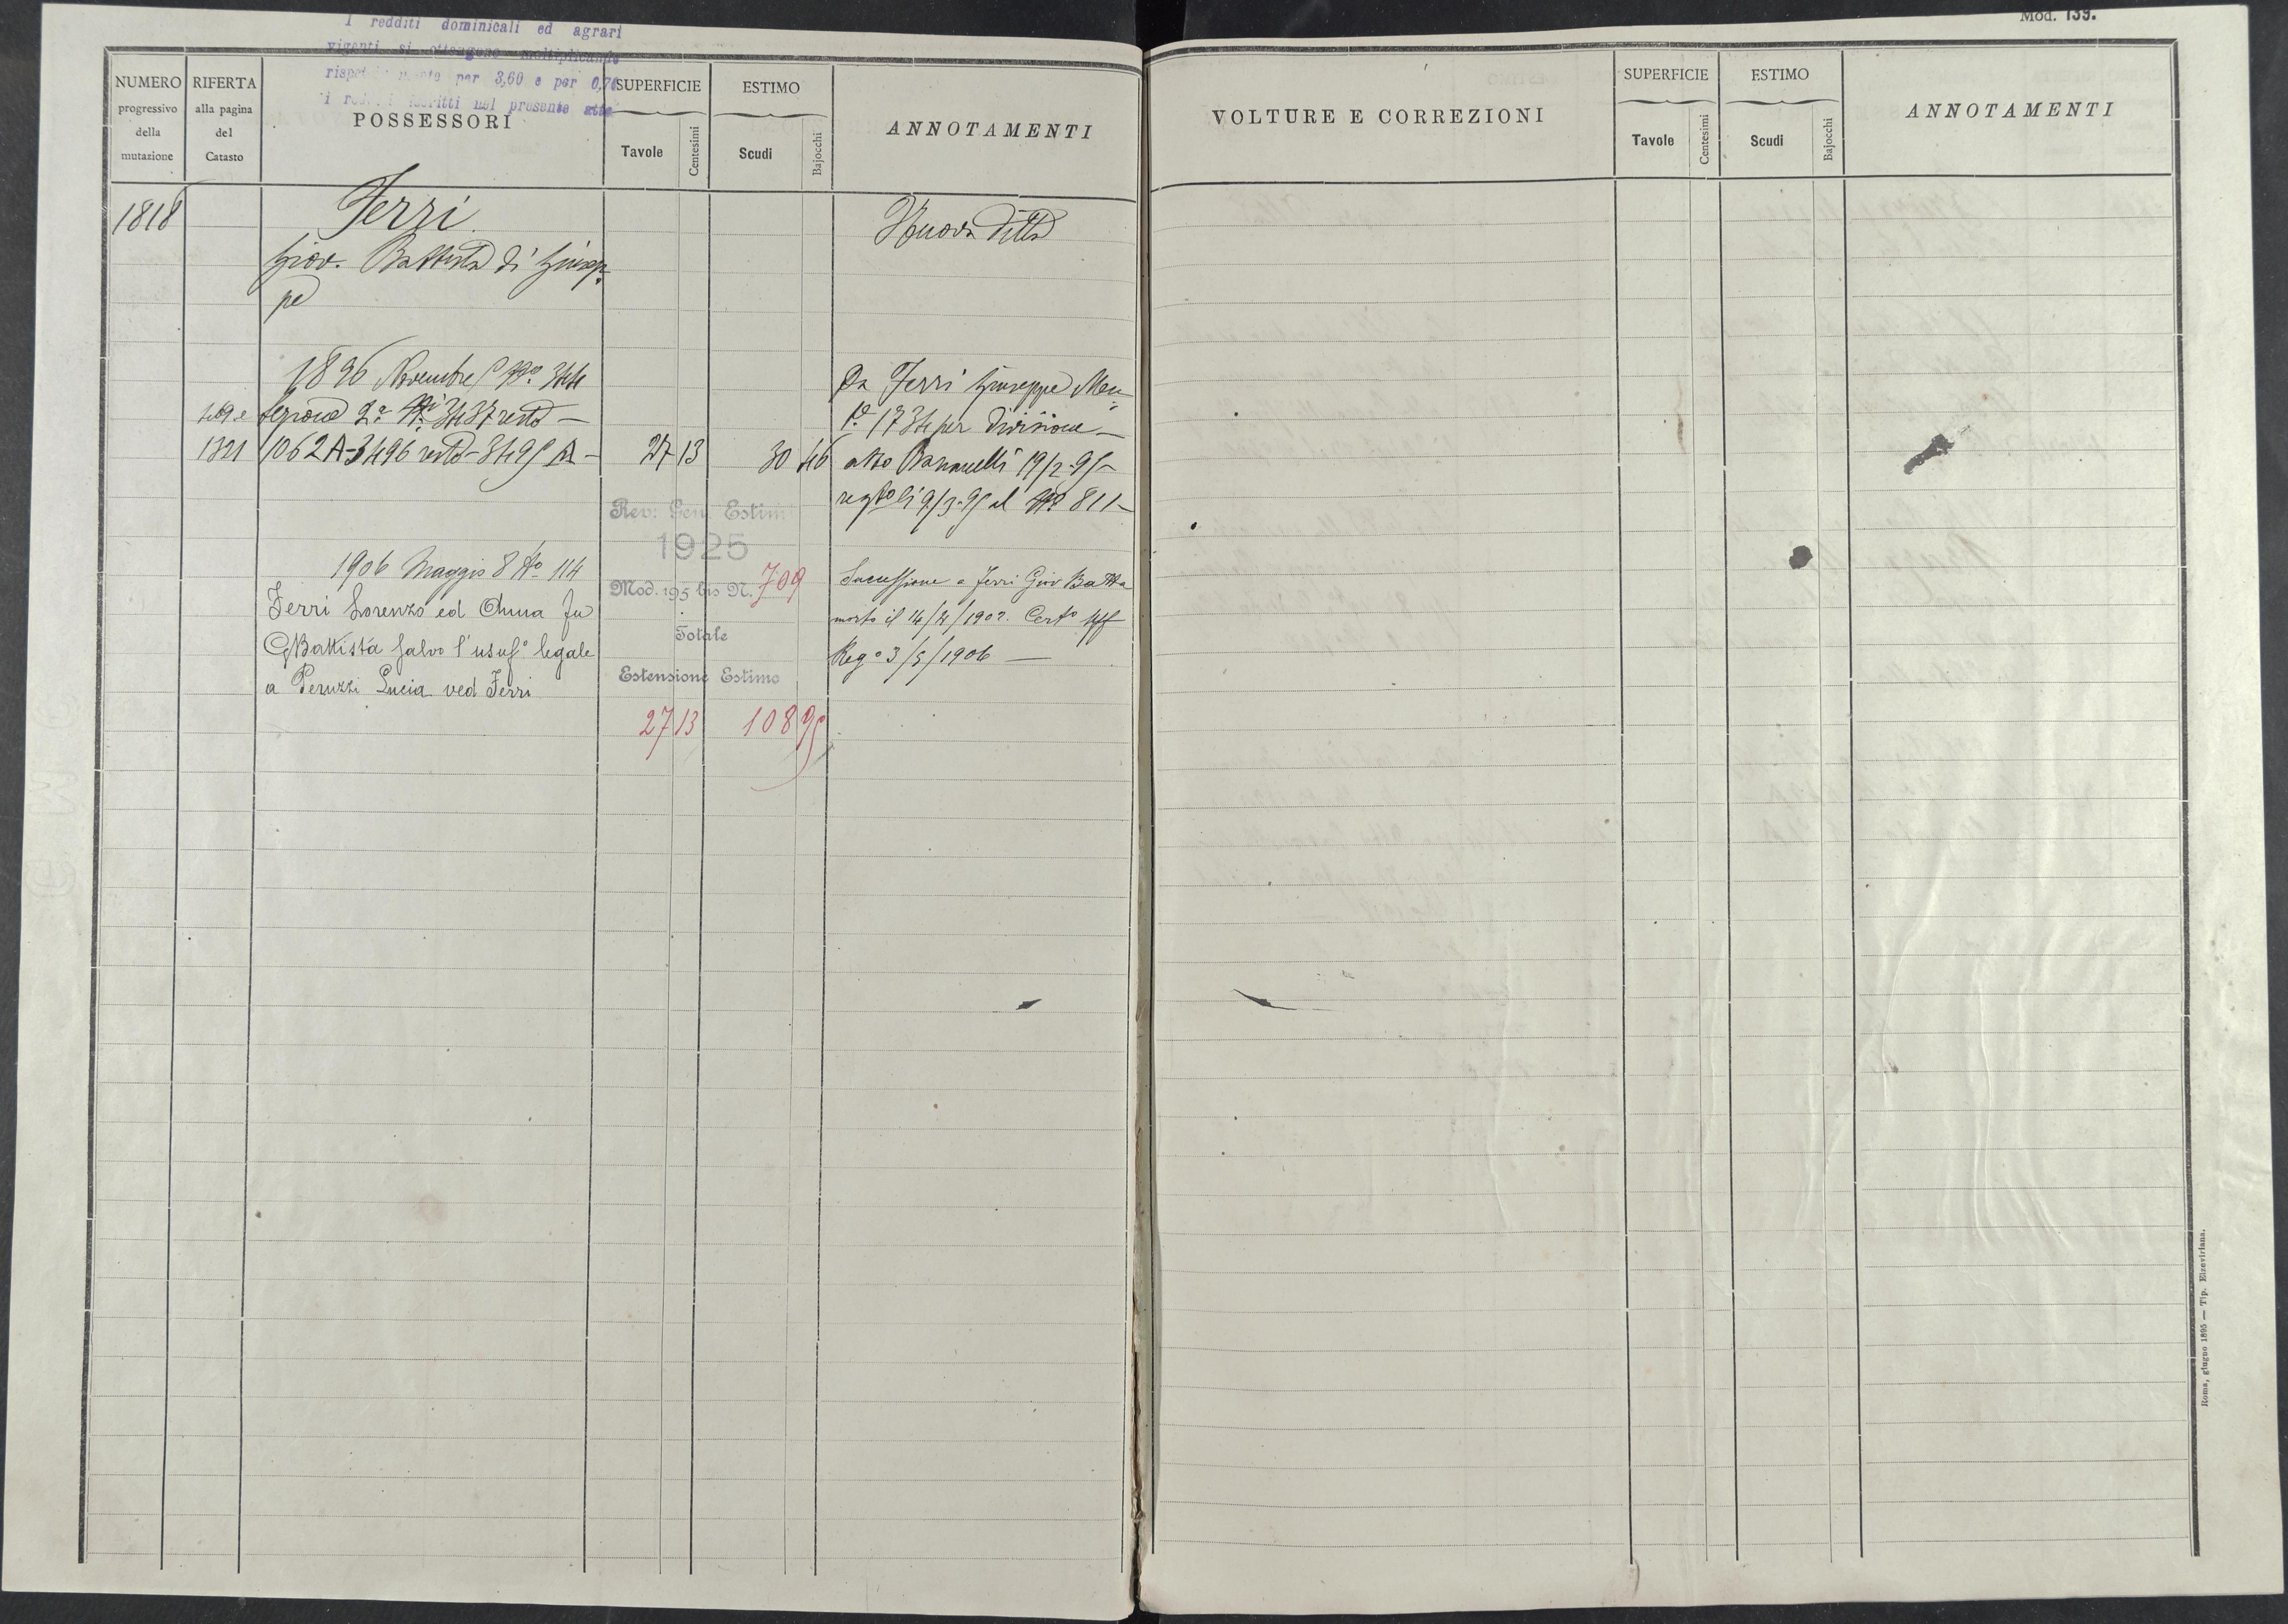 I redditi dominicali ed agrari
vigenti si ottengono moltiplicando
per 3,60 e per 0,70
i iscritti nel presente atto
NUMERO progressivo della mutazione
RIFERTA alla pagina del Catasto
POSSESSORI
SUPERFICIE
Tavole Centesimi
ESTIMO
Scudi Bajocchi
ANNOTAMENTI
1818
Ferri
Giov. Battista di Giusep
pe
Nuova Ditta
1896 Novembre No
Sezione 2a resto
1321 1062 A - 3496 resto - 3495 27 13 30 46
Da Ferri Giuseppe
per divisione
atto 19/2-95
regto li 9/3-95 al No 811
Rev: Gen. Estim:
1925
Mod. 195 bis N. 709
Totale
Estensione Estimo
27 13 108 95
1906 Maggio 8 No 114
Ferri Lorenzo ed Anna fu
GBattista salvo l'usufo legale
a Peruzzi Lucia ved Ferri
Successione a Ferri Giov Batta
morto il 14/4/1902. Certo
Rego 3/5/1906
Mod. 139.
VOLTURE E CORREZIONI
SUPERFICIE
Tavole Centesimi
ESTIMO
Scudi Bajocchi
ANNOTAMENTI
Roma, giugno 1895 — Tip. Elzeviriana.